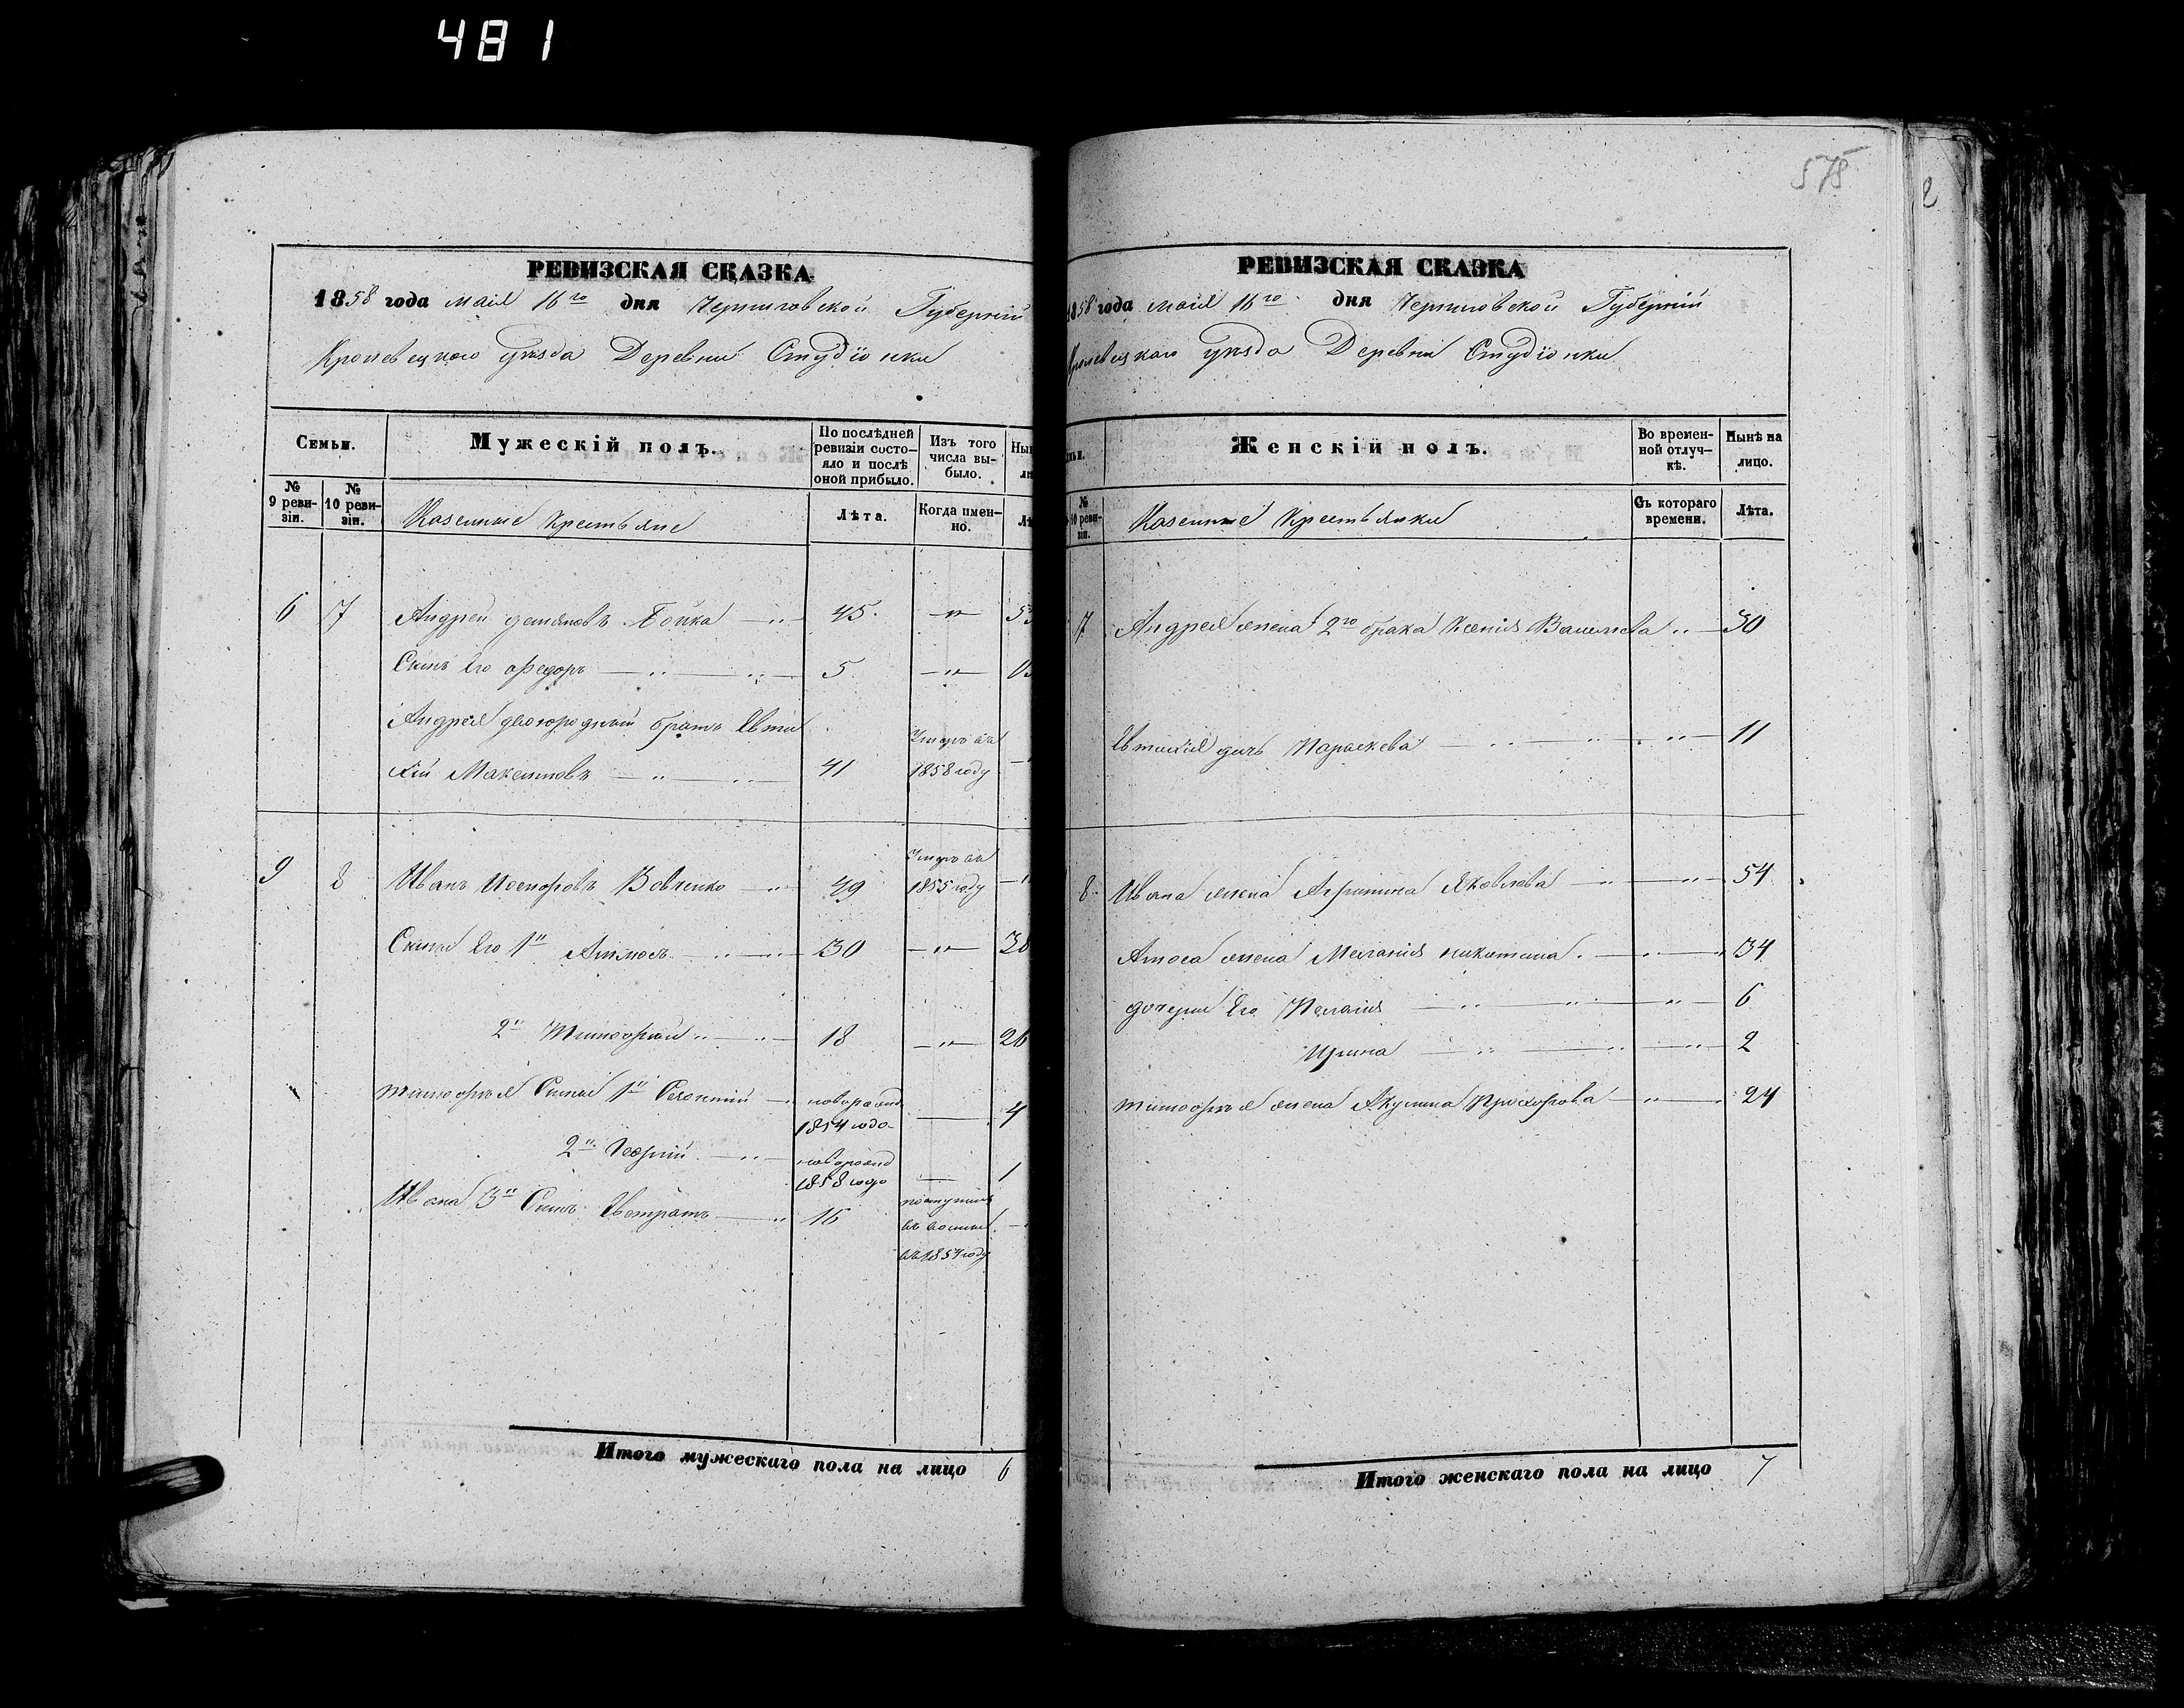 481
РЕВИЗСКАЯ СКАЗКА
1858 года мая 16го дня Черниговской Губерніи
Кролевецкаго уѣзда Деревни Студіонки
Семьи.
Мужескій полъ.
По послѣдней ревизіи состояло и послѣ оной прибыло.
Изъ того числа выбыло.
№ 9 ревизіи.
№ 10 ревизіи.
Казенные Крестьяне
Лѣта.
Когда именно.
6 7 Андрей демяновъ Бойка 45 53
Сынъ Его Федоръ 5
Андрея двоюродный братъ Евти
хій Максимовъ 41 Умеръ въ 1858 году
9 8 Иванъ Никифоровъ Вовченко 49 Умеръ въ 1855 году
Сыны Его 1й Аммосъ 30 38
2й Тимофѣй 18 26
Тимофѣя Сыны 1й новорожд 1854 года 4
2й Георгій новорожд 1858 года 1
Ивана 3й Сынъ Евстратъ 16 въ 1854 году
Итого мужескаго пола на лицо 6
575
2
РЕВИЗСКАЯ СКАЗКА
1858 года мая 16го дня Черниговской Губерніи
Кролевецкаго уѣзда Деревни Студіонки
Женскій полъ.
Во временной отлучкѣ.
Нынѣ на лицо.
№ 10 ревизіи.
Казенные Крестьянки
Съ котораго времени.
Лѣта.
7 Андрея жена 2го брака Ксенія 30
Евтихія дочь Параскева 11
8 Ивана жена Агрипина Яковлева 54
Амоса жена Меланія никитина 34
дочери Его Пелагія 6
Ирина 2
Тимофѣя жена Акулина Прохорова 24
Итого женскаго пола на лицо 7